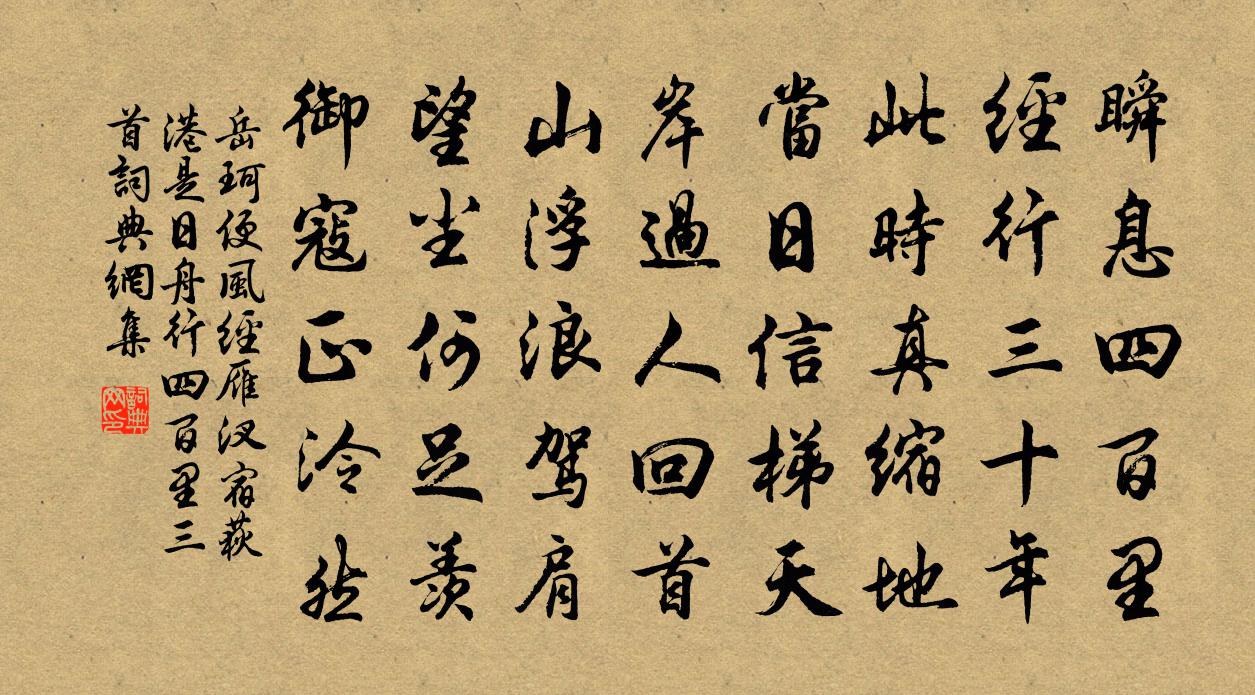 瞬息四百里
經行三十年
此時真縮地
當日信梯天
岸過人回首
山浮浪駕肩
望塵何足羨
御寇正泠然
岳珂便風經雁汊宿荻
港是日舟行四百里三
首詞典網集
詞典
网印